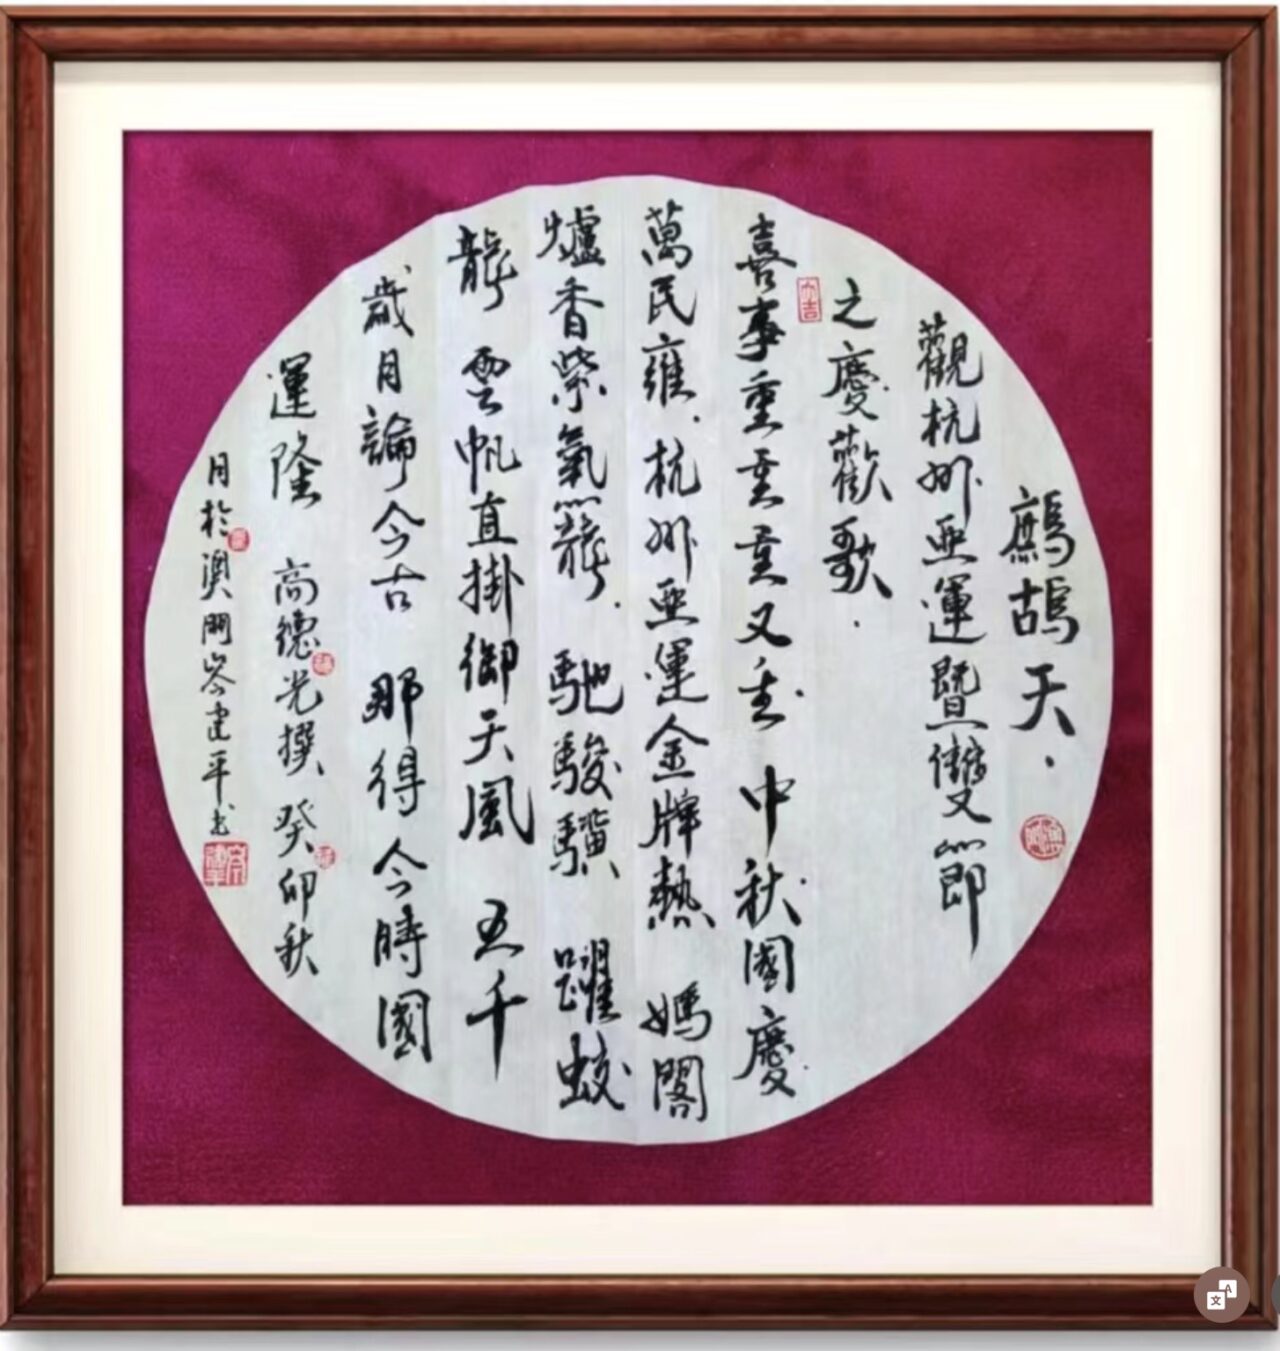 鷓鴣天·
觀杭州亞運暨雙節
之慶歡歌·
喜事重重重又重 中秋國慶
萬民雍·杭州亞運金牌熱 媽閣
爐香紫氣籠·馳駿驥 躍蛟
龍 雲帆直掛御天風 五千
歲月論今古 那得今時國
運隆 高德光撰 癸卯秋
月於澳門岑建平书
大吉